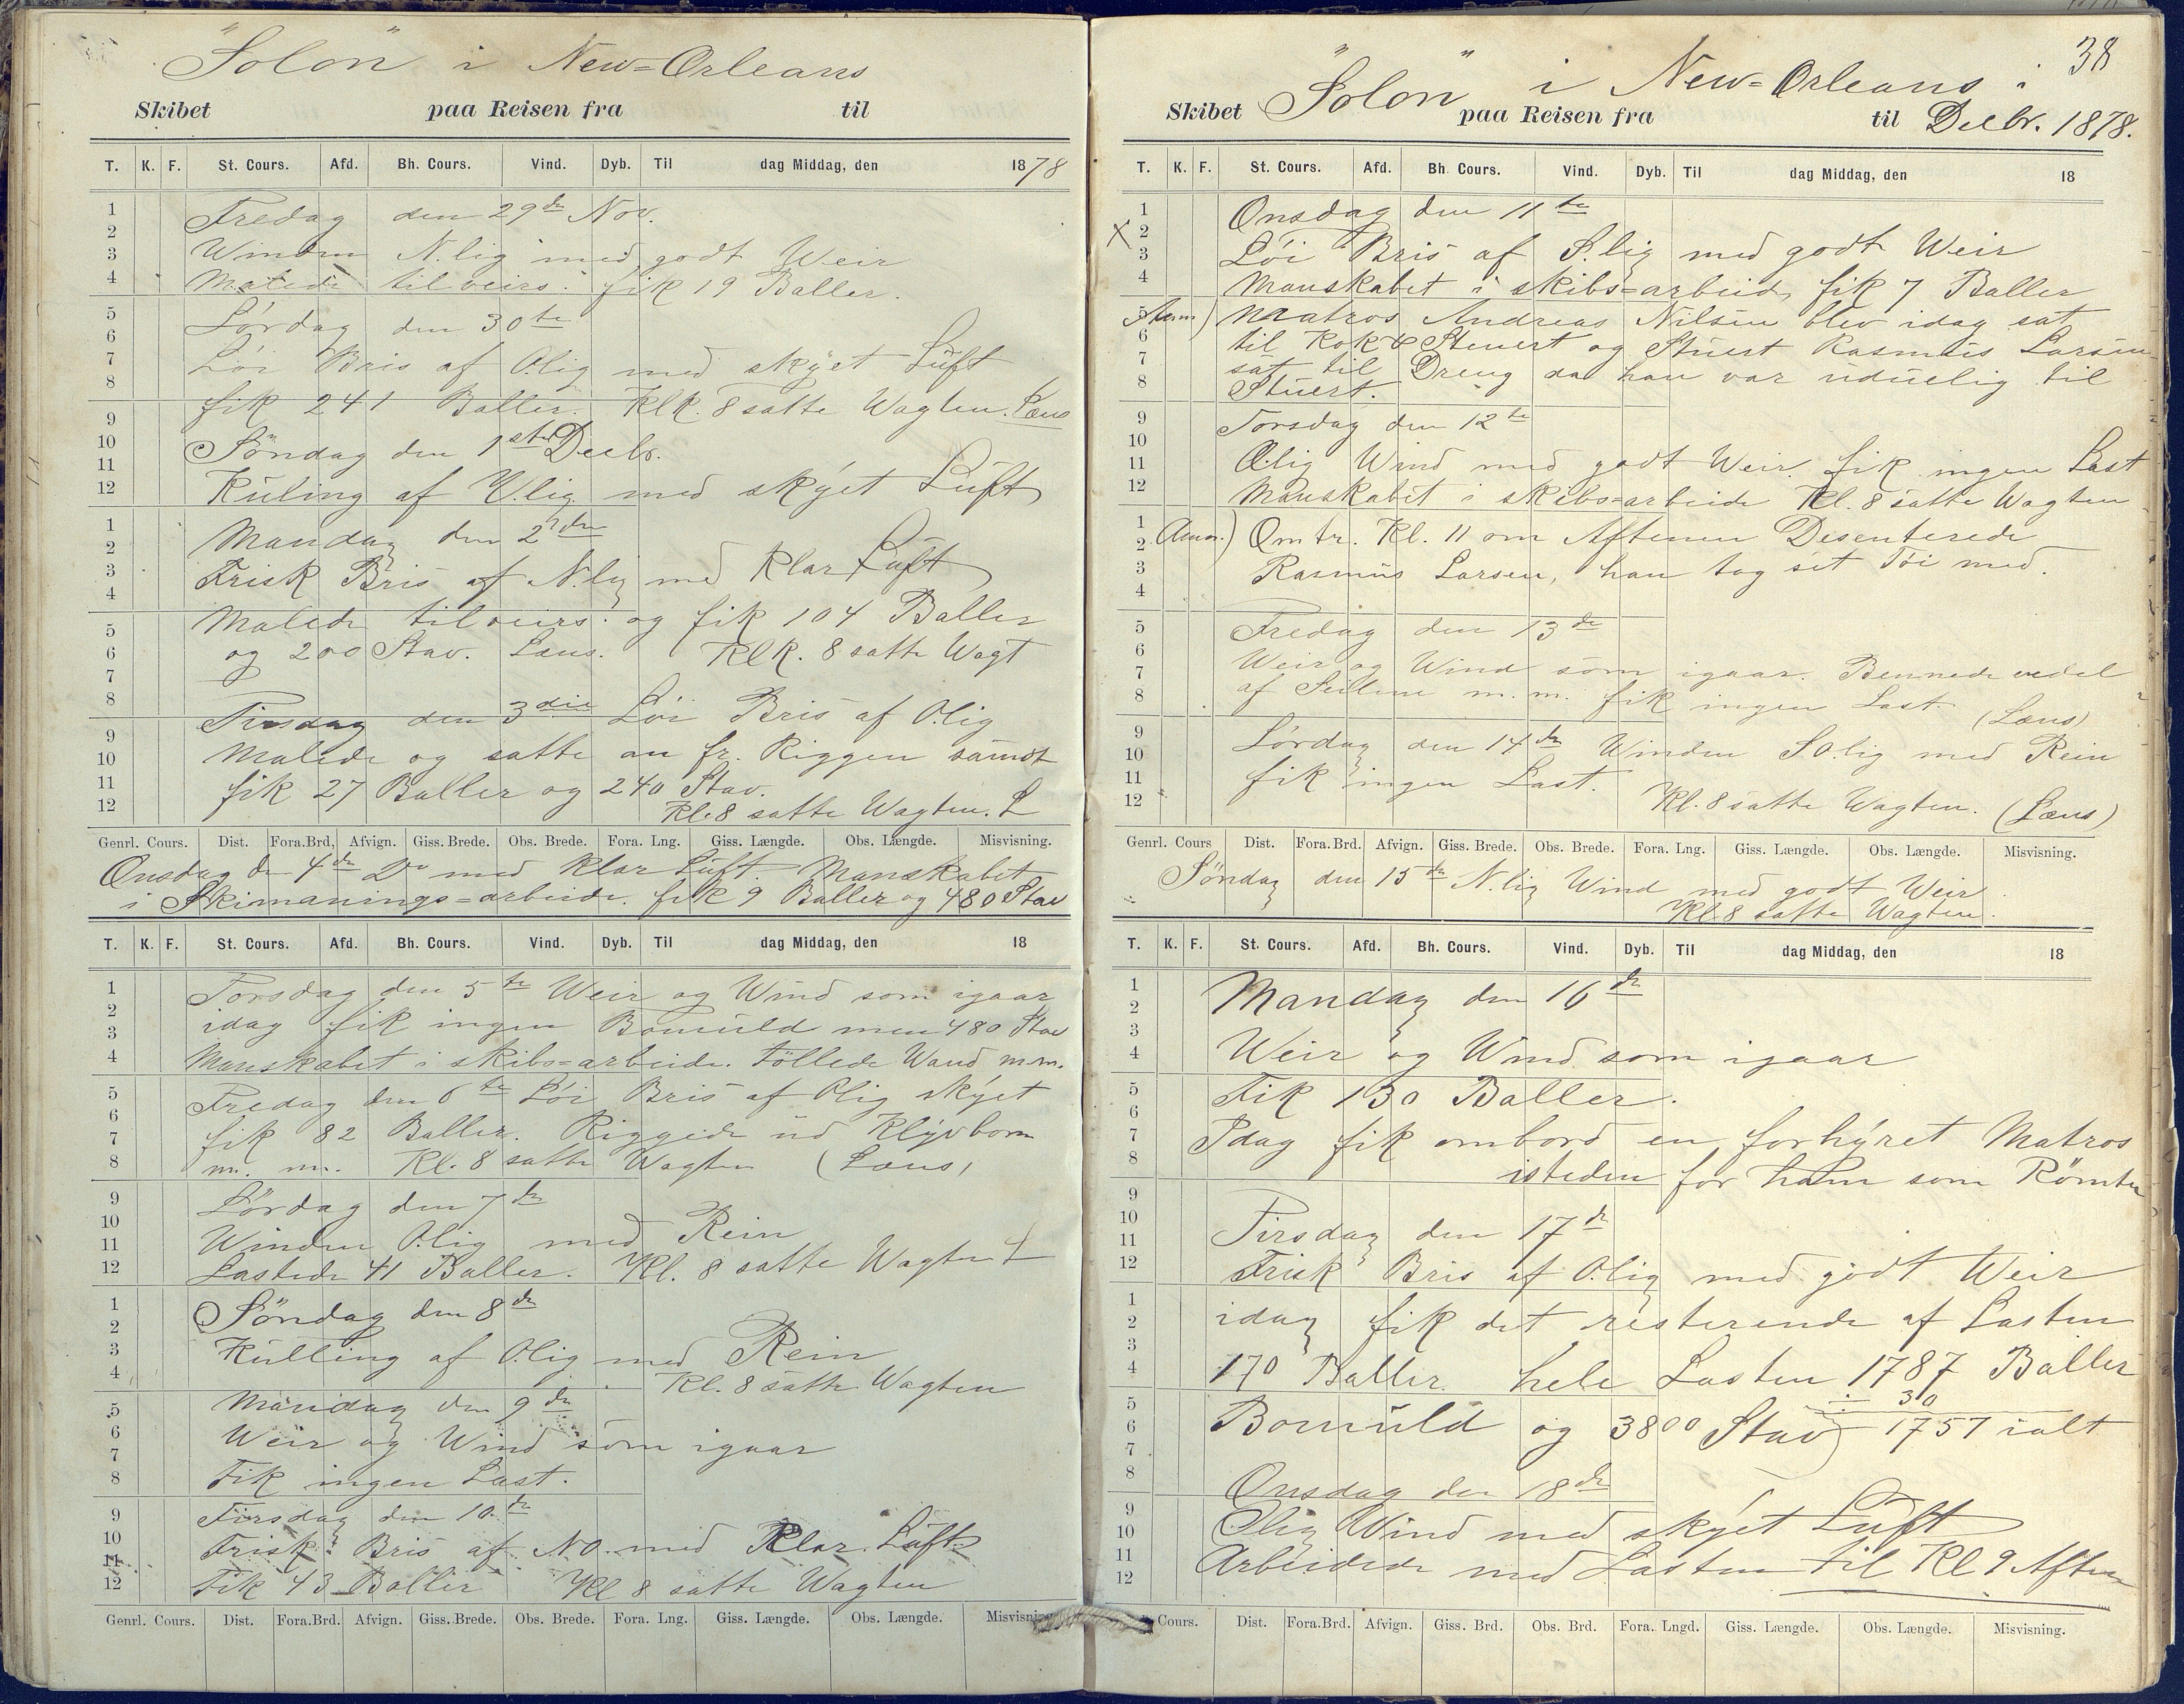 "Solon" i New=Orleans
Skibet paa Reisen fra til
T. K. F. St. Cours. Afd. Bh. Cours. Vind. Dyb. Til dag Middag, den 1878
1
2
3
4
5
6
7
8
9
10
11
12
1
2
3
4
5
6
7
8
9
10
11
12
Fredag den 29de Nov.
Winden N.lig med godt Weir
Malede tilveirs. fik 19 Baller.
Lördag den 30te
Löi Bris af O.lig med skÿet Luft
fik 241 Baller. Klk. 8 satte Wagten. Læns
Söndag den 1ste Decbr.
Kuling af V.lig med skÿet Luft
Mandag den 2den
Frisk Bris af N.lig med Klar Luft
Malede tilveirs. og fik 104 Baller
og 200 Stav. Læns. Klk. 8 satte Wagt
Tirsdag den 3die Löi Bris af O.lig
Malede og satte an fr. Riggen samt
fik 27 Baller og 240 Stav.
Kl. 8 satte Wagten. L
Genrl. Cours. Dist. Fora.Brd, Afvign. Giss. Brede. Obs. Brede. Fora. Lng. Giss. Længde. Obs. Længde. Misvisning.
Onsdag den 4de Do med Klar Luft. Manskabet
i Skimanings=arbeide. fik 9 Baller og 480 Stav
T. K. F. St. Cours. Afd. Bh. Cours. Vind. Dyb. Til dag Middag, den 18
1
2
3
4
5
6
7
8
9
10
11
12
1
2
3
4
5
6
7
8
9
10
11
12
Torsdag den 5te Weir og Wind som igaar
idag fik ingen Bomuld men 480 Stav
Manskabet i skibs=arbeide. töllede Wand m.m.
Fredag den 6te Löi Bris af O.lig skÿet
fik 82 Baller. Riggede ud Klÿvbom
m. m. Kl. 8 satte Wagten (Læns)
Lördag den 7de
Winden O.lig med Rein
Lastede 41 Baller. Kl. 8 satte Wagten L
Söndag den 8de
Kulling af O.lig med Rein
Kl. 8 satte Wagten
Mandag den 9de
Weir og Wind som igaar
Fik ingen Last.
Tirsdag den 10.de
Frisk Bris af NO. med Klar Luft
Fik 43 Baller Kl 8 satte Wagten
Genrl. Cours. Dist. Fora.Brd. Afvign. Giss. Brede. Obs. Brede. Fora. Lng. Giss. Længde. Obs. Længde. Misvisning
38
"Solon" i New=Orleans i
Skibet paa Reisen fra til Decbr. 1878.
T. K. F. St. Cours. Afd. Bh. Cours. Vind. Dyb. Til dag Middag, den 18
1
2
3
4
5
6
7
8
9
10
11
12
1
2
3
4
5
6
7
8
9
10
11
12
Onsdag den 11te
X Löi Bris af S.lig med godt Weir
Manskabet i skibs=arbeide fik 7 Baller
Anm) Matros Andreas Nilsen blev idag sat
til Kok & Steuert og Stuert Rasmus Larsen
sat til Dreng da han var uduelig til
Stuert.
Torsdag den 12te
O.lig Wind med godt Weir. fik ingen Last
Manskabet i skibs=arbeide Kl. 8 satte Wagten
Anm.) Omtr. Kl. 11 om Aftenen Desenterede
Rasmus Larsen, han tog sit Töi med.
Fredag den 13de
Weir og Wind som igaar. Bennede vedel
af Seilene m.m. fik ingen Last. (Læns)
Lördag den 14de Winden SO.lig med Rein
fik ingen Last.
Kl. 8 satte Wagten. (Læns)
Genrl. Cours Dist. Fora.Brd. Afvign. Giss. Brede. Obs. Brede. Fora. Lng. Giss. Længde. Obs. Længde. Misvisning.
Söndag den 15de N.lig Wind med godt Weir
Kl. 8 satte Wagten.
T. K. F. St. Cours. Afd. Bh. Cours. Vind. Dyb. Til dag Middag, den 18
1
2
3
4
5
6
7
8
9
10
11
12
1
2
3
4
5
6
7
8
9
10
11
12
Mandag den 16de
Weir og Wind som igaar
Fik 130 Baller.
Idag fik ombord en forhÿret Matros
isteden for ham som Römte
Tirsdag den 17de
Frisk Bris af O.lig med godt Weir
idag fik det resterende af Lasten
170 Baller. hele Lasten 1787 Baller
30
Bomuld og 3800 Stav) 1757 ialt
Onsdag den 18de
O.lig Wind med skÿet Luft
Arbeidede med Lasten til Kl 9 Aften
Cours. Dist. Fora.Brd. Afvign. Giss. Brd. Obs. Brd. Fora. Lngd. Giss. Længde. Obs. Længde. Misvisning.